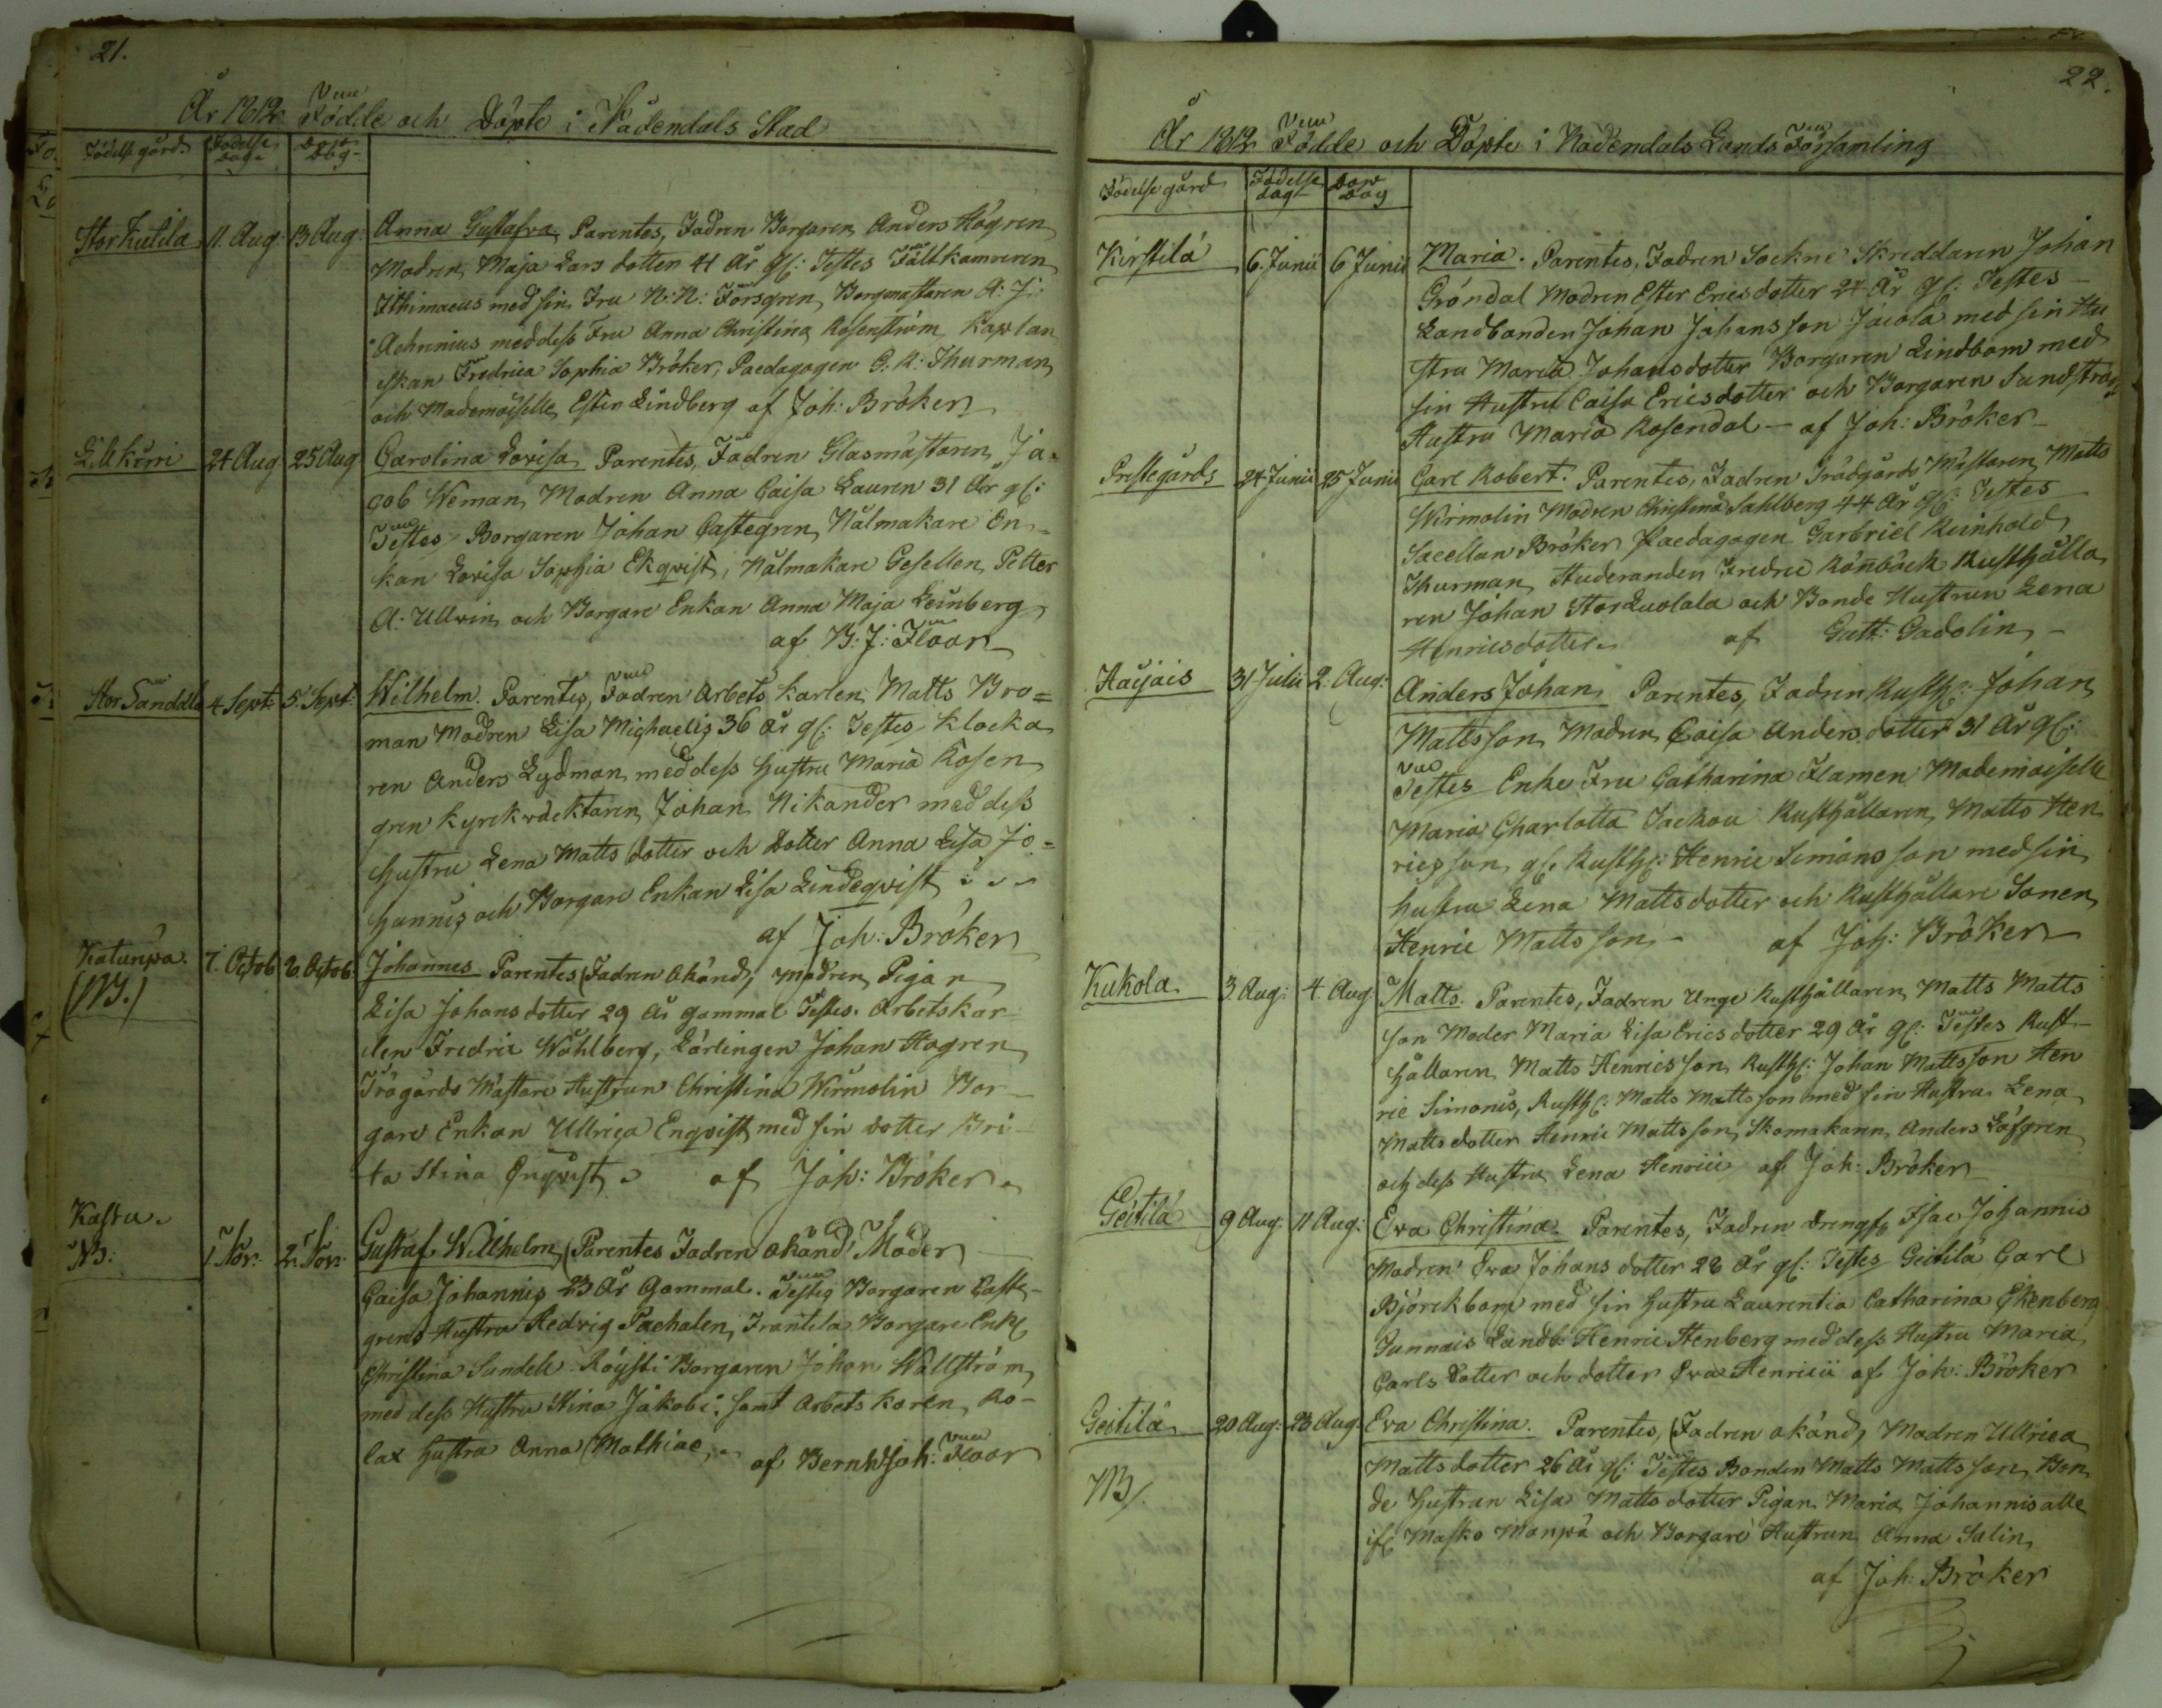 21.
År 1812 Födde och Döpte i Nådendals Stad
Födelse gård Födelse dag Dop Dag
Anna Gustafva Parentes, Fadren Borgaren Anders Högren
Stor Kulila 11. Aug: 13 Aug:
Modren Maja Lars dotten 41 År gl: Testes Fältkamreren
Ithimaeus med sin Fru N: N: Forsgren, Borgmästaren A: J:
Achrenius med dess Fru Anna Christina Rosenström Kaplan
skan Fredrica Sophia Bröker, Paedagogen G. R: Thurman
och Mademoiselle Estin Lindberg af Joh: Bröker
Lill kurri 24 Aug 25 Aug Carolina Lovisa Parentes, Fadren Glasmästaren Ja=
cob Weman, Modren Anna Caisa Lauren 31 År gl:
Testes Borgaren Johan Castegren, Nålmakare En-
kan Lovisa Sophia Ekqvist, Nålmakare Gesellen Petter
A: Ullvin och Borgare Enkan Anna Maja Leinberg
af B: J: Floor
Stor Sandell 4 Sept: 5. Sept: Wilhelm. Parentes, Fadren Arbets karlen Matts Bro=
man Modren Lisa Michaelis 36 år gl: Testes Klocka
ren Anders Lydman, med dess hustru Maria Rosen
gren Kyrckväcktaren Johan Nikander med dess
hustru Lena Matts dotter och Dotter Anna Lisa Jo=
hannis och Borgare Enkan Lisa Lindeqvist
af Joh: Bröker
Katunpä. 7. Octob 20. Octob: Johannes Parentes (Fadren okänd, modren Pigan
(NB.)
Lisa Johans dotter 29 År gammal Testes. Arbetskar
len Fredric Wåhlberg, Lärlingen Johan Hogren
Trägårds Mästare Hustrun Christina Wirmolin Bor-
gare Enkan Ullrica Enqvist med sin dotter Bri-
ta Stina Enqvist af Joh: Bröker
Kastu.
NB: 1. Nov: 2. Nov: Gustaf Willhelm, (Parentes Fadren okänd, Moder
Caisa Johannis 23 År Gammal. Testes Borgaren Caste-
grens Hustru Hedvig Pachalen, Frantila Borgare Enk:
Christina Sundell Röysti Borgaren Johan Wallström
med dess Hustru Stina Jakobi: samt Arbets karln Ro-
lax hustra Anna Mathiae, af Bernh Joh: Floor
22.
År 1812 Födde och Döpte i Nådendals Lands Församling
Födelse gård Födelse dag Dop Dag
Kirstilä 6. Junii 6 Junii Maria. Parentes, Fadren Sockne Skreddaren Johan
Gröndal Modren Ester Erics dotter 24 År gl: Testes
Landbonden Johan Johans son Jaiola med sin Hu
stru Maria Johansdotter Borgaren Lindbom med
sin Hustru Caisa Ericsdotter och Borgaren Sundströms
Hustru Maria Rosendal - af Joh: Bröker
Prestegårds 24 Junii 25 Junii Carl Robert. Parentes, Fadren Trädgårds Mästaren Matts
Wirmolin Modren Christina Sahlberg 44 År gl: Testes
Sacellan Bröker Paedagogen Garbriel Reinhold
Thurman Studeranden Fredric Rönnbäck Rusthålla
ren Johan Stor Luolala och Bonde Hustrun Lena
Henricsdotter. af Gutt: Gadolin
Haijais 31 Julii 2. Aug: Anders Johan Parentes, Fadren Rusth: Johan
Mattsson Modren Caisa Anders dotter 31 År gl:
Testes Enke Fru Catharina Flamen Mademoiselle
Maria Charlotta Jackou Rusthållaren Matts Hen
ricsson gl. Rusth: Henric Simonsson med sin
hustru Lena Matts dotter och Rusthållare Sonen
Henric Mattsson af Joh: Bröker
Kukola 3. Aug: 4. Aug: Matts. Parentes, Fadren Unge Rusthållaren Matts Matts
son Moder Maria Lisa Erics dotter 29 År gl: Testes Rust-
hållaren Matts Henricsson Rusth: Johan Mattsson Hen
ric Simonis, Rusth: Matts Matts son med sin Hustru Lena
Matts dotter Henric Mattsson, Skomakaren Anders Löfgren
och dess Hustru Lena Henrici af Joh: Bröker
Geitilä 9 Aug: 11 Aug: Eva Christina. Parentes, Fadren drengs: Isac Johannis
Modren Eva Johans dotter 28 År gl: Testes Geitilä Carl
Björckbom med sin hustru Laurentia Catharina Ekenberg
Gunnais Landb: Henric Stenberg med dess Hustru Maria
Carls Dotter och dotter Eva Henricii af Joh: Bröker
Geitilä 20 Aug: 23 Aug: Eva Christina. Parentes, (Fadren okänd, Modren Ullrica
NB.
Matts dotter 26 År gl: Testes Bonden Matts Mattsson, Bon
de hustrun Lisa Matts dotter Pigan Maria Johannis alle
ifr: Masko Manpä och Borgare Hustrun Anna Salin
af Joh: Bröker